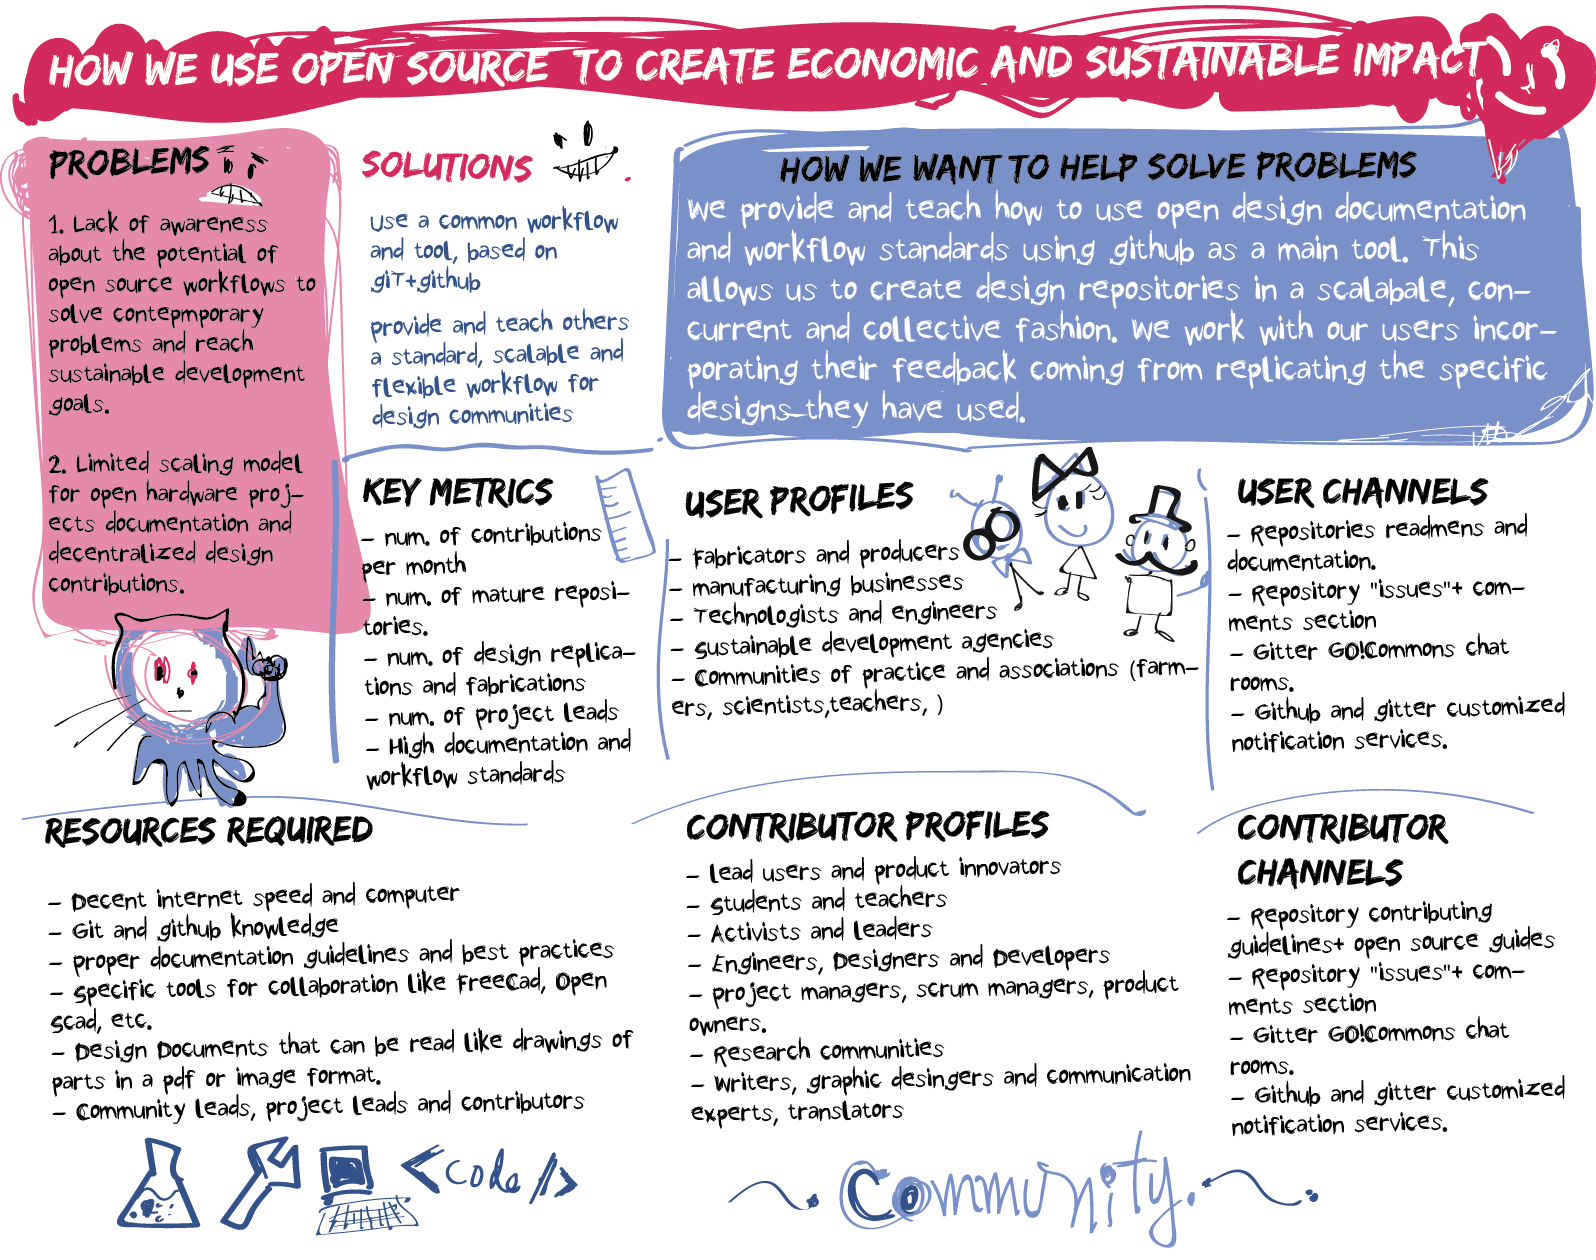 HOW WE USE OPEN SOURCE TO CREATE ECONOMIC AND SUSTAINABLE IMPACT
PROBLEMS
1. Lack of awareness
about the potential of
open source workflows to
solve contepmporary
problems and reach
sustainable development
goals.
2. Limited scaling model
for open hardware proj-
ects documentation and
decentralized design
contributions.
SOLUTIONS
use a common workflow
and tool, based on
giT+github
provide and teach others
a standard, scalable and
flexible workflow for
design communities
HOW WE WANT TO HELP SOLVE PROBLEMS
We provide and teach how to use open design documentation
and workflow standards using github as a main tool. This
allows us to create design repositories in a scalabale, con-
current and collective fashion. We work with our users incor-
porating their feedback coming from replicating the specific
designs they have used.
KEY METRICS
- num. of contributions
per month
- num. of mature reposi-
tories.
- num. of design replica-
tions and fabrications
- num. of project leads
- High documentation and
workflow standards
USER PROFILES
- Fabricators and producers
- manufacturing businesses
- Technologists and engineers
- Sustainable development agencies
- Communities of practice and associations (farm-
ers, scientists,teachers, )
USER CHANNELS
- Repositories readmens and
documentation.
- Repository "issues"+ com-
ments section
- Gitter GO!Commons chat
rooms.
- Github and gitter customized
notification services.
RESOURCES REQUIRED
- Decent internet speed and computer
- Git and github knowledge
- proper documentation guidelines and best practices
- Specific tools for collaboration like FreeCad, Open
Scad, etc.
- Design Documents that can be read like drawings of
parts in a pdf or image format.
- Community leads, project leads and contributors
CONTRIBUTOR PROFILES
- Lead users and product innovators
- Students and teachers
- Activists and leaders
- Engineers, Designers and Developers
- project managers, scrum managers, product
owners.
- Research communities
- Writers, graphic desingers and communication
experts, translators
CONTRIBUTOR
CHANNELS
- Repository contributing
guidelines+ open source guides
- Repository "issues"+ com-
ments section
- Gitter GO!Commons chat
rooms.
- Github and gitter customized
notification services.
<code/>
Community.